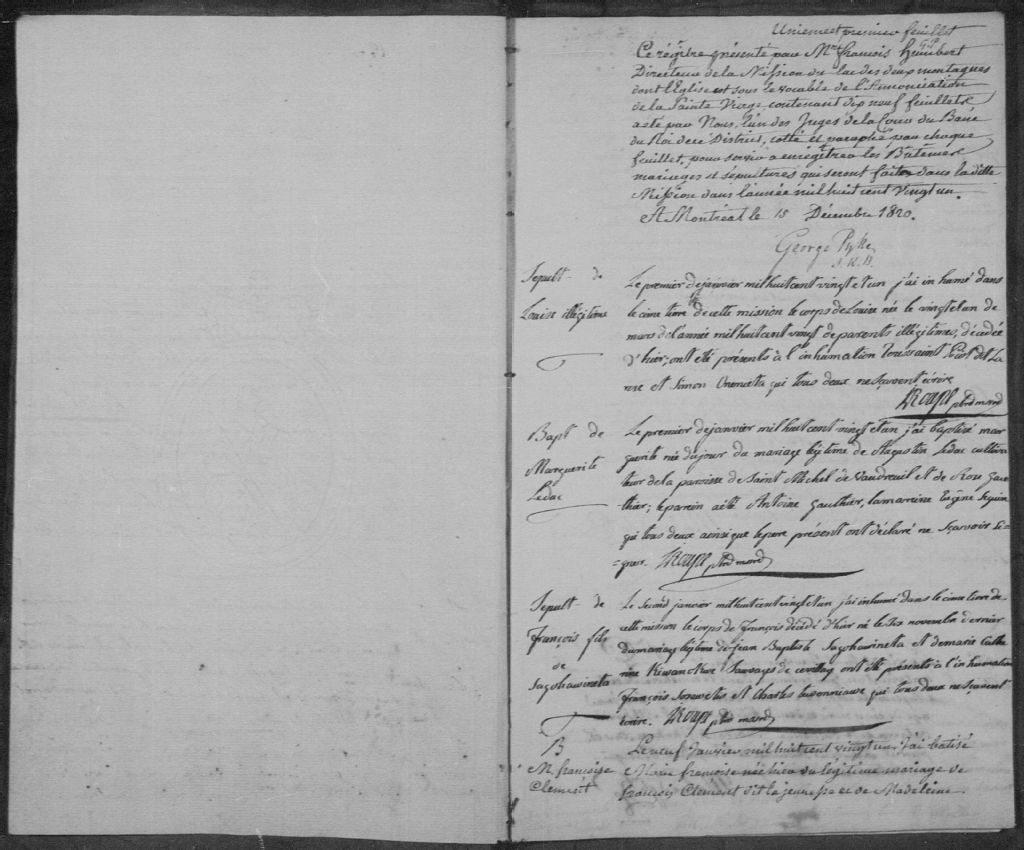 premier feuillet
Ce régître présenté par Mre François Humbert
Directeur de la Mission du lac des deux montagnes
dont l'Eglise est sous le vocable de l'Annonciation
de la Sainte Vierge contenant dix neuf feuillets
a été par Nous, l'un des Juges de la Cour du Banc
du Roi de ce District, cotté et paraphé par chaque
feuillet, pour servir a enregîtrer les Batêmes
mariages et sépultures qui seront faites dans la ditte
Mission dans l'année mil huit cent vingt un.
A Montréal le 15 Décembre 1820.
George Pyke
J. K. B.
Sepult- de
Louise illégitime
Le premier de janvier mil huit cent vingt et un j'ai inhumé dans
le cimetiere de cette mission le corps de Louise née le vingt et un de
mars de l'année mil huit cent vingt de parents illégitimes, décédée
d'hier; ont été présents à l'inhumation Toussaint dit La
rose et Simon qui tous deux ne sçavent écrire
Bapt de
Marguerite
Ledac
Le premier de janvier mil huit cent vingt et un j'ai baptisé mar
guerite née du jour du mariage légitime de Augustin Ledac cultiva
teur de la paroisse de Saint Michel de Vaudreuil et de Rose gau
thier; le parein a été Antoine Gauthier, la mareine Eugène Seguin
qui tous deux ainsi que le pere présent ont déclaré ne sçavoir si=
=gner.
Sepult- de
François fils
de
Sagohawineta
Le second janvier mil huit cent vingt et un j'ai inhumé dans le cimetiere de
cette mission le corps de François décédé d'hier né le dix novembre dernier
du mariage légitime de Jean Baptiste Sagohawineta et de marie Cathe
rine Sauvages de ont été présents à l'inhumation
François et Charles qui tous deux ne sçavent
écrire.
B
M. françoise
Clement
Le neuf Janvier mil huit cent vingt un j'ai batisé
Marie françoise née hier du légitime mariage de
françois Clément dit la jeunesse et de Madeleine